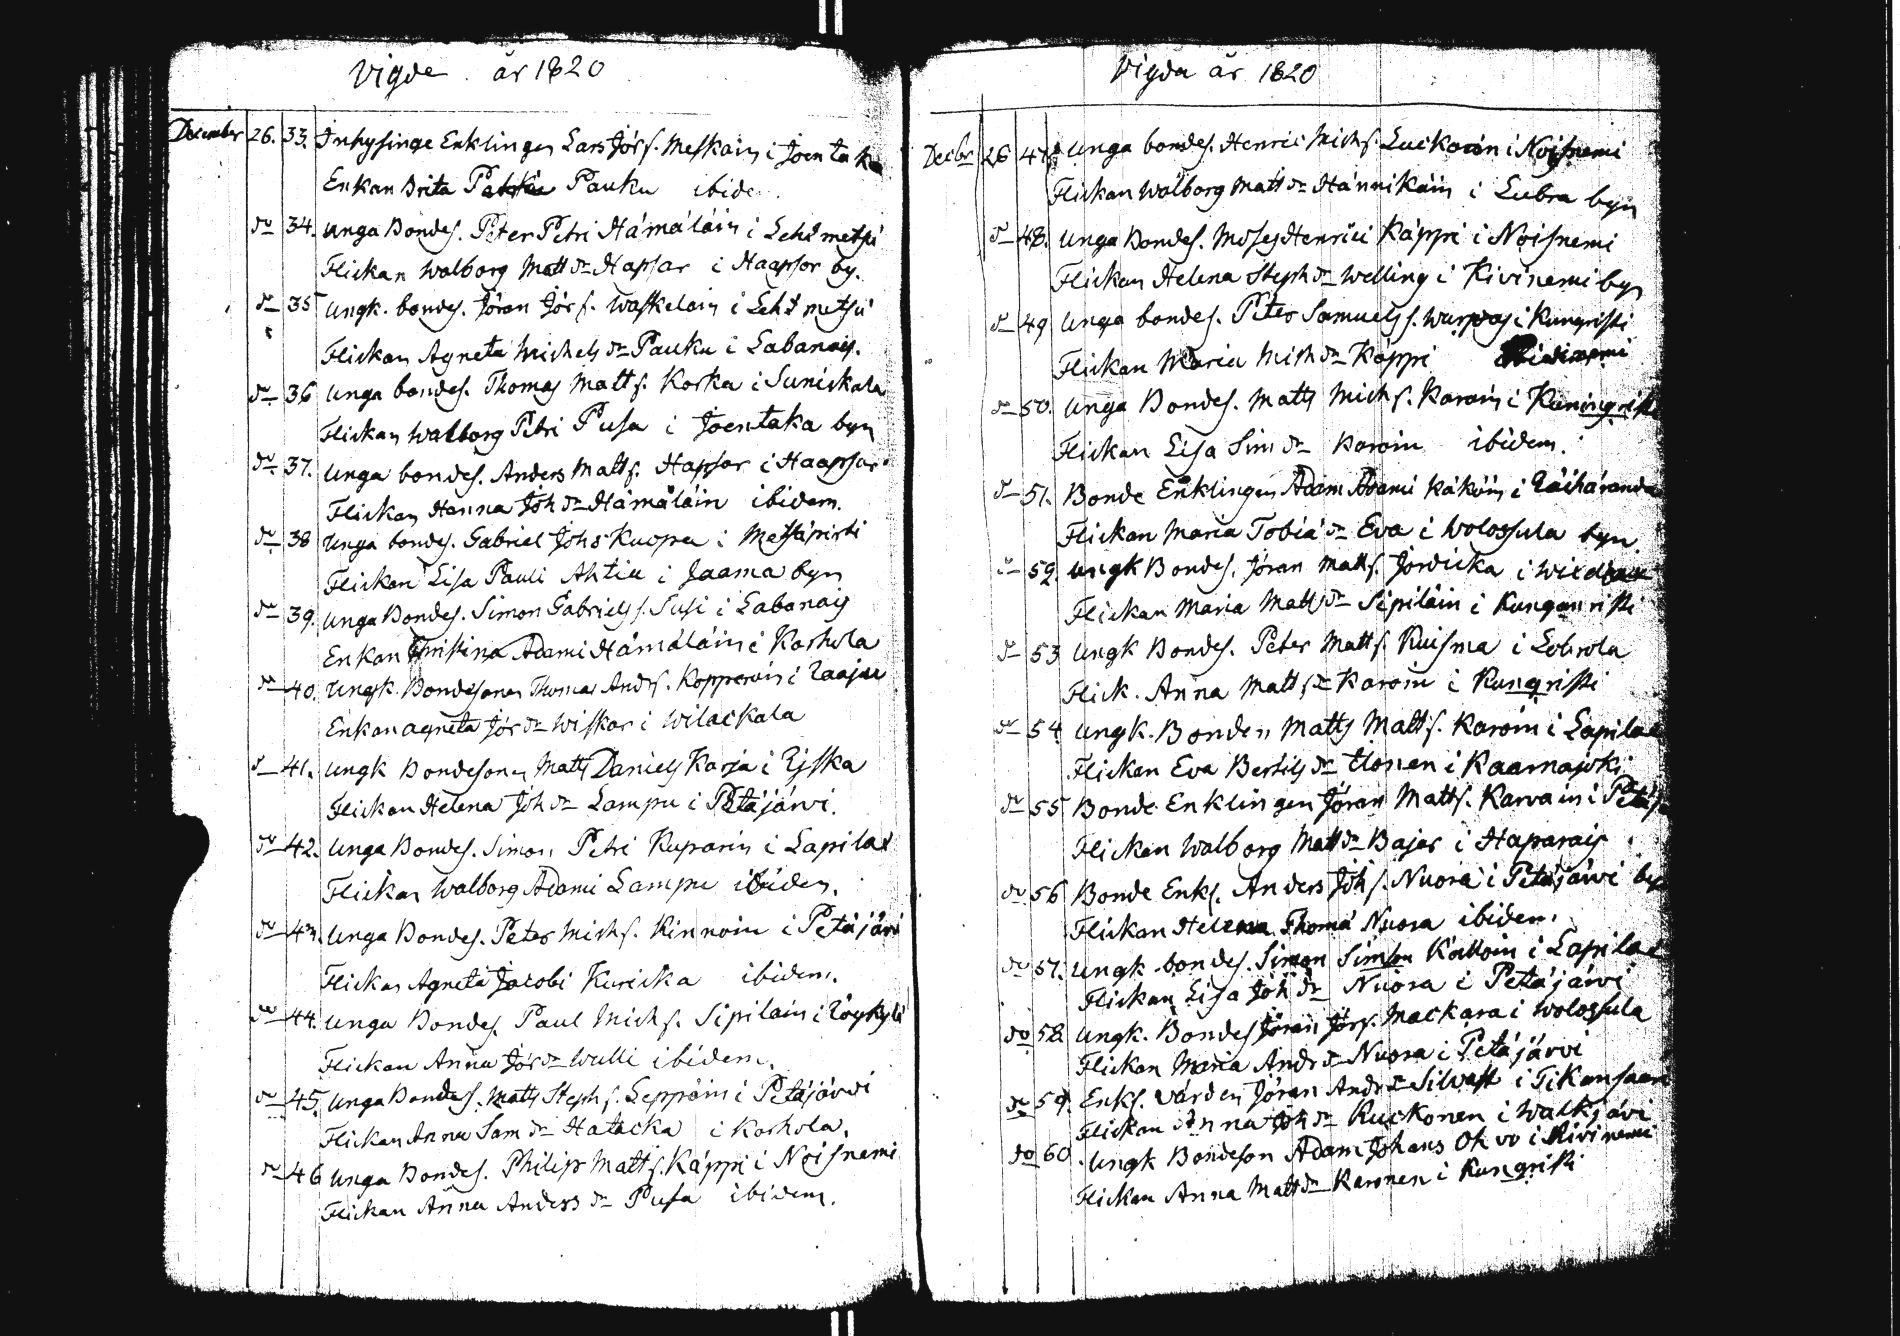 Vigde år 1820
December 26. 33. Inhysinge Enklingen Lars Jör s. Meskain i Joentaka
Enkan Brita Pauku ibide
do 34. unga Bondes. Peter Petri Hämäläin i Lehtmetsä
Flickan Walborg Matt dr Hapsar i Haapsar by.
do 35 ungk. bondes. Jöran Jör s. Waskelain i Lehtmetsä
Flickan Agneta Michels dr Pauku i Labanais.
do 36 unga bondes. Thomas Matt s. Korka i Sunickala
Flickan Walborg Petri Pusa i Joentaka byn
do 37. unga bondes. Anders Matt s. Hapsar i Haapsar
Flickan Hanna Joh dr Hämäläin ibidem.
do 38 unga bondes. Gabriel Johs Kuopia i Metsäpirti
Flickan Lisa Pauli Ahtia i Jaama byn
do 39. unga Bondes. Simon Gabriels s. Susi i Labanais
Enkan Christina Adami Hämäläin i Korhola
do 40. Ungk. Bondesonen Thomas Andr s. Kopperoin i Raaju
Enkan agneta Jör dr Wiskar i Wilackala
d 41. ungk Bondesonen Matts Daniels Karja i Rjska
Flickan Helena Joh dr Lampu i Petäjärvi.
do 42. unga Bondes. Simon Petri Kuparin i Lapilax
Flickan Walborg Adami Lampu ibidem.
do 43. unga Bondes. Peter Mich s. Kinnoin i Petäjärvi
Flickan Agneta Jacobi Kuricka ibidem.
do 44. unga Bondes. Paul Mich s. Sipilain i Röyskylä
Flickan Anna Jör dr Wulli ibidem.
do 45. unga Bondes. Matts Steph s. Leppäin i Petäjärvi
Flickan Anna Sam dr Hatacka i Korhola.
do 46 unga Bondes. Philip Matt s. Käppi i Noisnemi
Flickan Anna Anders dr Pusa ibidem.
Vigda år 1820
Decbr 26 47 unga bondes. Henric Mich s. Luckoin i Noisnemi
Flickan Walborg Matt dr Hännikäin i Lubra byn
d 48. unga Bondes. Moses Henrici Käppi i Noisnemi
Flickan Helena Steph dr Welling i Kivinemi byn
d 49 unga bondes. Peter Samuels s. Warpas i Kungristi
Flickan Maria Mich dr Käppi
do 50. unga Bondes. Matts Mich s. Karoin i Kuningristi
Flickan Lisa Sim dr Karoin ibidem.
do 51. Bonde Enklingen Adam Adami Käköin i Räihäranda
Flickan Maria Tobiä dr Eva i Wolossula byn.
d 52. ungk Bondes. Jöran Matt s. Jordicka i
Flickan Maria Matts dr Sipiläin i Kunganristi
d 53 ungk Bondes. Peter Matt s. Kuisma i Lohrola
Flick. Anna Matts dr Karoin i Kungristi
do 54 ungk. Bonden Matts Matt s. Karoin i Lapilax
Flickan Eva Bertils dr Ilonen i Kaarnajoki
do 55 Bonde Enklingen Jöran Matt s. Karvain i Petäjä
Flickan Walborg Matt dr Bajar i Haparais
do 56 Bonde Enkl. Anders Joh s. Nuora i Petäjärvi by
Flickan Helena Thomä Nuora ibidem.
do 57. ungk bondes. Simon Simon Kackoin i Lapilax
Flickan Lisa Joh dr Nuora i Petäjärvi
do 58. ungk. Bondes Jöran Jör s. Mackara i Wolossula
Flickan Maria Andr dr Nuora i Petäjärvi
do 59. Enkl. Värden Jöran Andr s Silvast i Tikansaari
Flickan Anna Joh dr Kuckonen i Walkjärvi
do 60. ungk Bondeson Adam Johans Ohvo i Kivinemi
Flickan Anna Matt dr Karonen i Kungristi